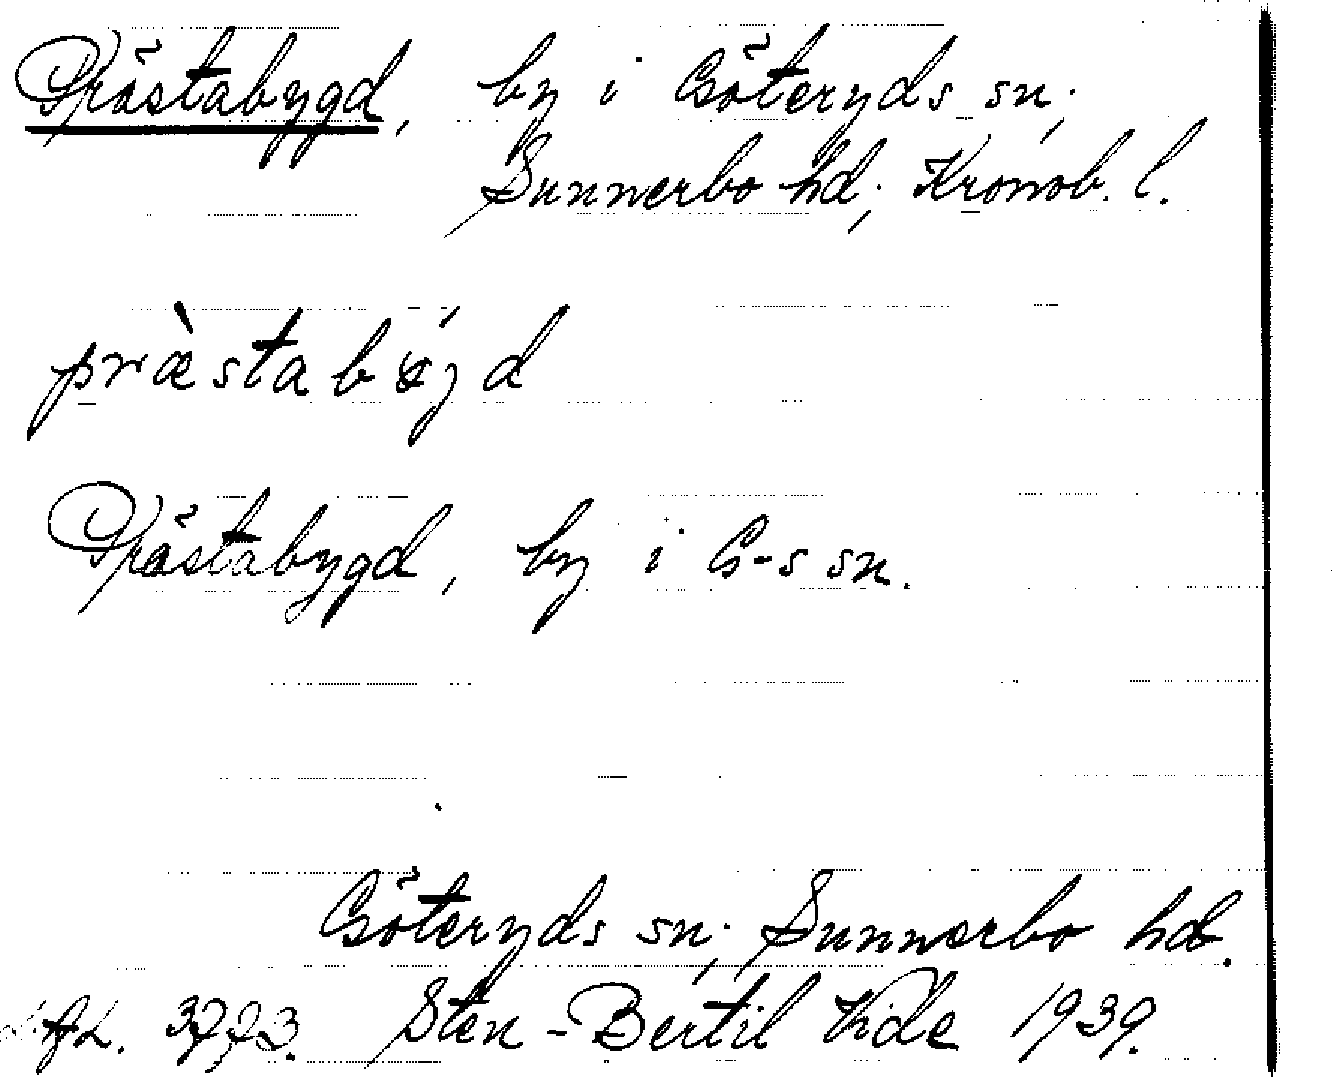 Prästabygd, by i Göteryds sn;
Sunnerbo hd; Kronob. l.
præ̀stabýgd
Prästabygd, by i G-s sn.
Göteryds sn; Sunnerbo hd.
3773. Sten-Bertil Vide 1939.